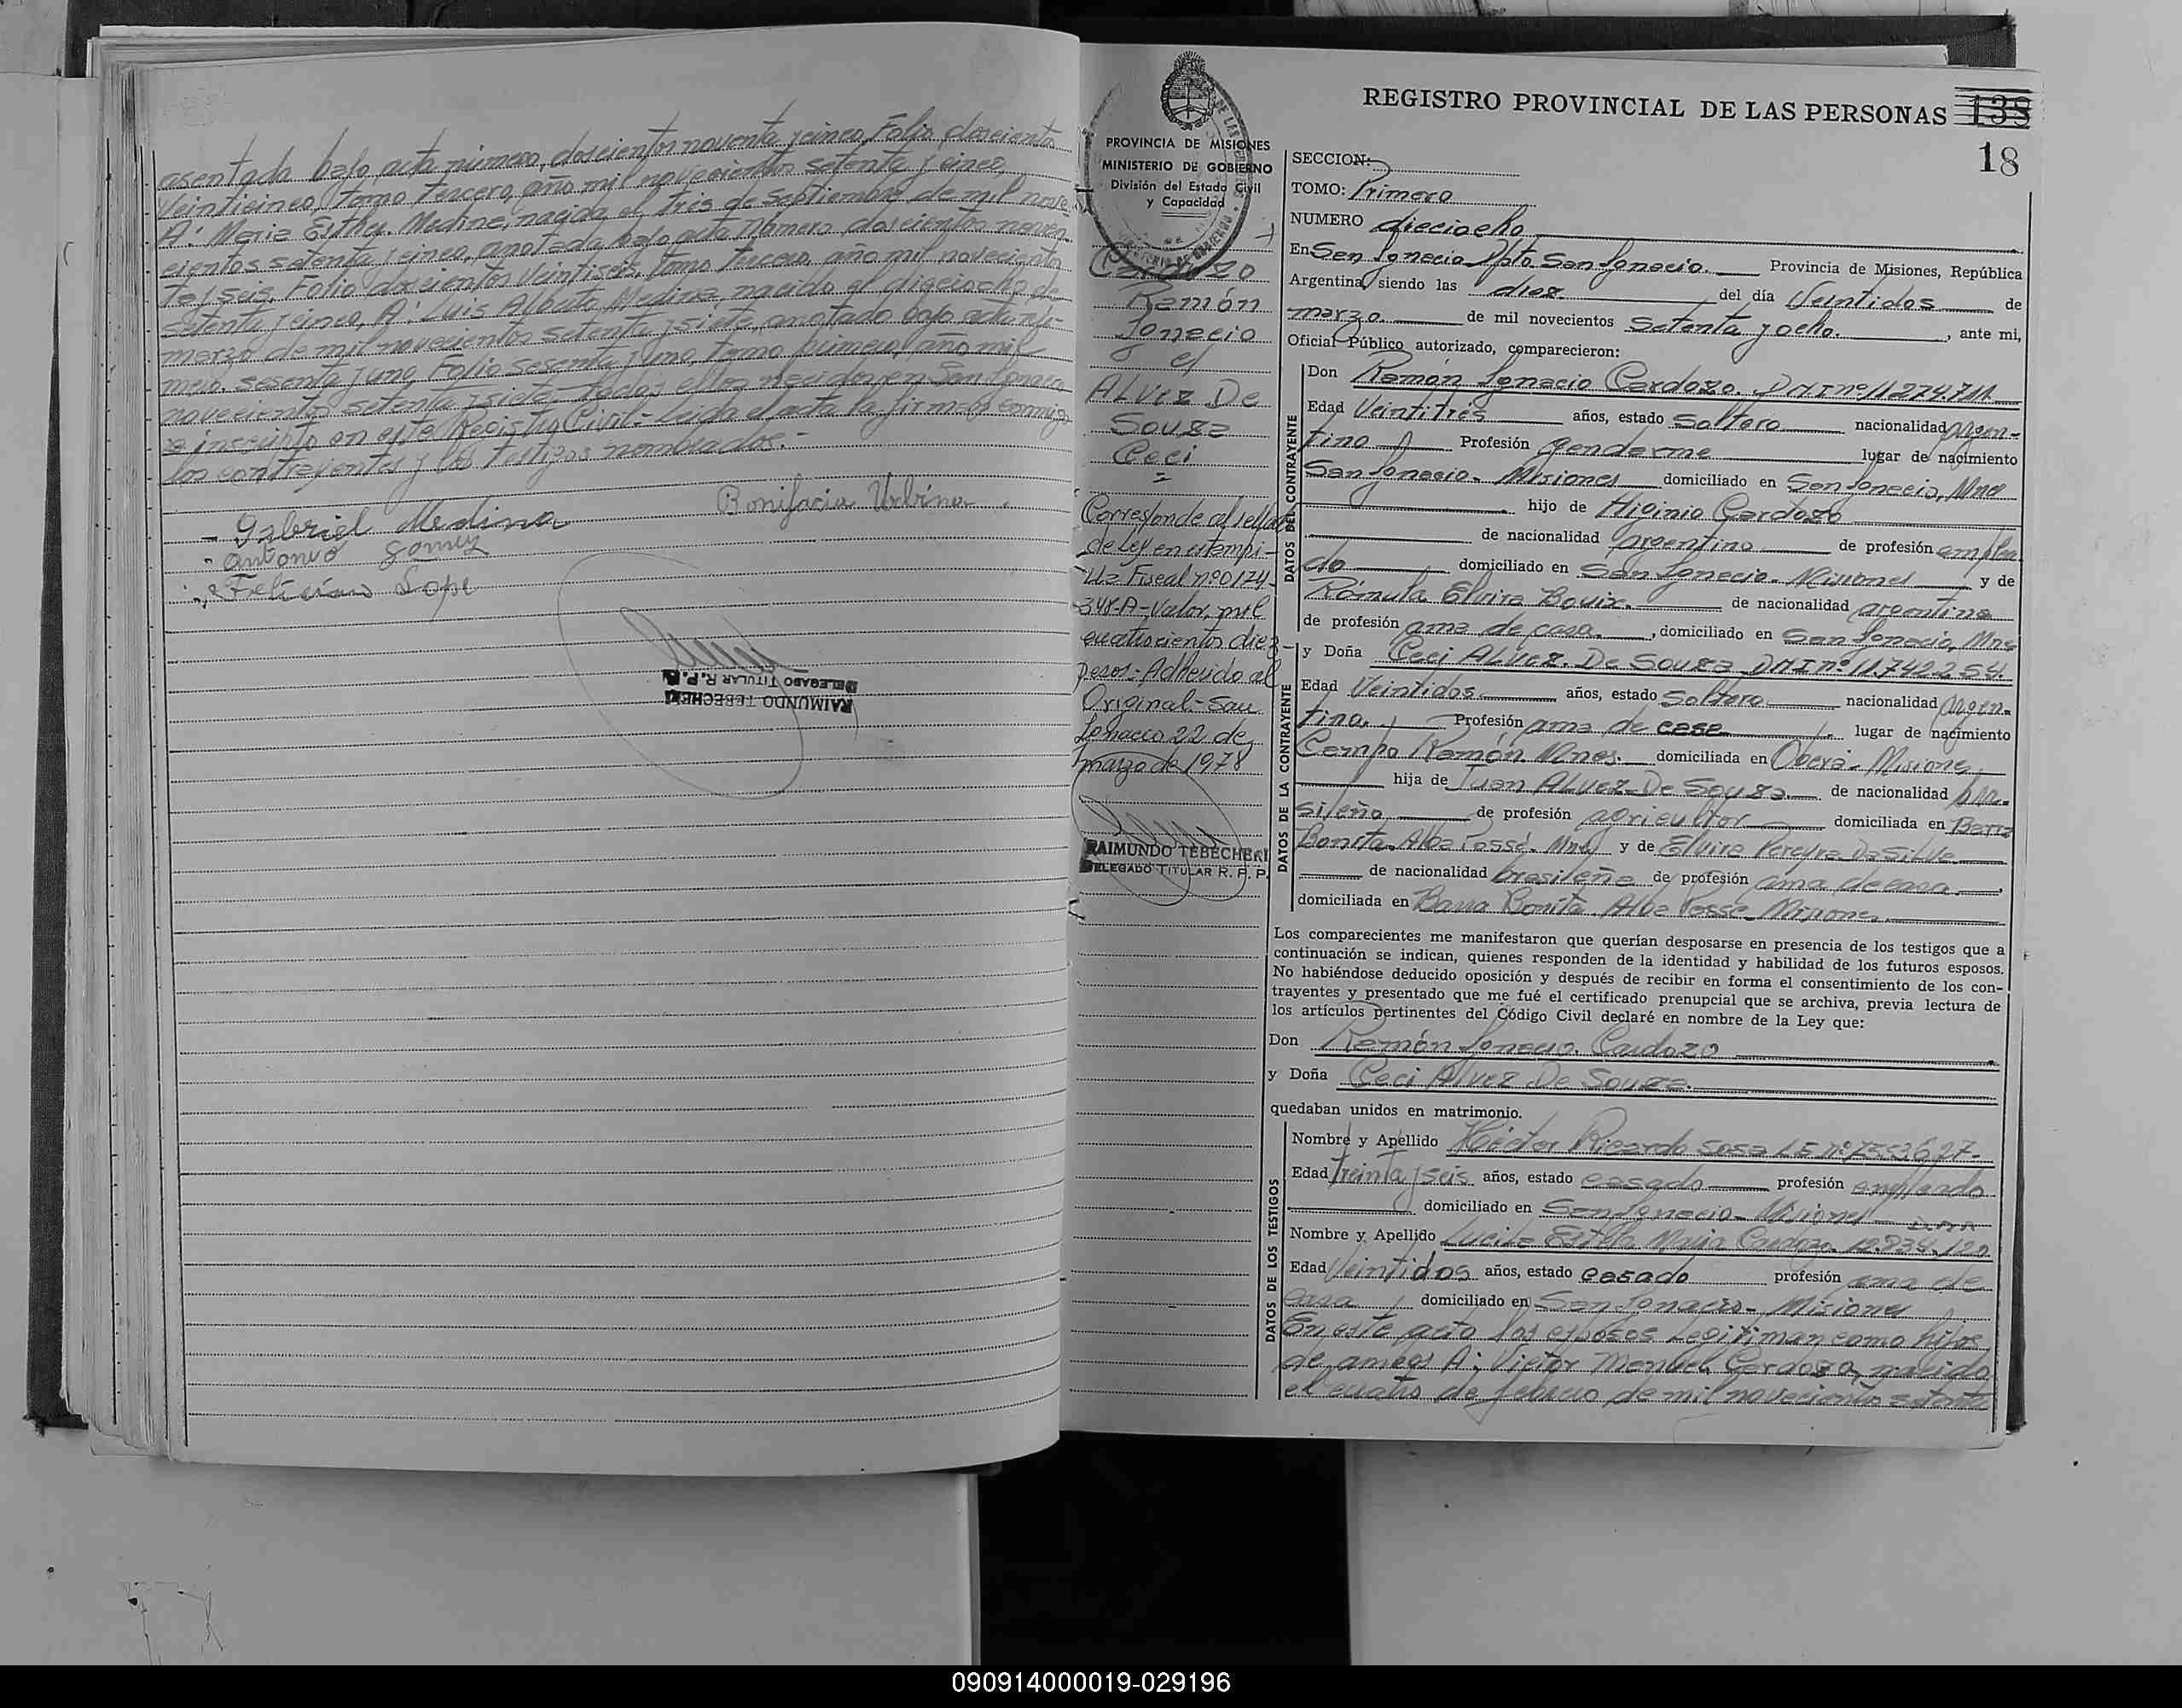 asentada bajo acta número, doscientos noventa y cinco, Folio doscientos
Veinticinco, Tomo Tercero, año mil novecientos setenta y cinco,
A: María Esther Medina, nacida el tres de septiembre de mil nove
cientos setenta y cinco, anotada bajo acta Número doscientos noven
ta y seis, Folio doscientos Veintiseis, Tomo Tercero, año mil novecientos
setenta y cinco, A: Luis Alberto Medina, nacido el dieciocho de
marzo de mil novecientos setenta y siete, anotado bajo acta nú-
mero sesenta y uno, Folio sesenta y uno, Tomo primero, año mil
novecientos setenta y siete- todos ellos nacidos en San Ignacio
e inscripto en este Registro Civil- Leída el acta la firman conmigo
los contrayentes y los testigos nombrados.-
Bonifacia Urbina
- Gabriel Medina
- antonio gomez
Feliciano Lope
RAIMUNDO TEBECHERI
DELEGADO TITULAR R. P. P.
REGISTRO PROVINCIAL DE LAS PERSONAS 138
18
PROVINCIA DE MISIONES
MINISTERIO DE GOBIERNO
División del Estado Civil
y Capacidad
Cardozo
Ramón
Ignacio
y
ALVEZ De
Souza
Ceci
Corresponde al sellado
de Ley en estampi-
lla Fiscal nº 0174
348-A-Valor, mil
cuatrocientos diez
pesos- Adherido al
Original- San
Ignacio 22 de
marzo de 1978
RAIMUNDO TEBECHERI
DELEGADO TITULAR R. P. P.
SECCION:
TOMO: Primero
NUMERO dieciocho
En San Ignacio Dpto. San Ignacio. Provincia de Misiones, República
Argentina, siendo las diez del día Veintidos de
marzo. de mil novecientos setenta y ocho. , ante mi,
Oficial Público autorizado, comparecieron:
DATOS DEL CONTRAYENTE
Don Ramón Ignacio Cardozo. DNI nº 11.274.711
Edad Veintitres años, estado Soltero nacionalidad argen-
tino Profesión gendarme lugar de nacimiento
San Ignacio- Misiones domiciliado en San Ignacio, Mnes
hijo de Higinio Cardozo
de nacionalidad argentino de profesión emplea
do domiciliado en San Ignacio- Misiones y de
Rómula Elvira Bouix. de nacionalidad argentina
de profesión ama de casa. , domiciliado en San Ignacio, Mnes
DATOS DE LA CONTRAYENTE
y Doña Ceci ALVEZ. De Souza DNI nº 11.742.254.
Edad Veintidos años, estado Soltera nacionalidad Argen-
tina. Profesión ama de casa lugar de nacimiento
Campo Ramón Mnes. domiciliada en Obera- Misiones
hija de Juan ALVEZ De Souza nacionalidad bra-
sileño de profesión agricultor domiciliada en Barra
Bonita- Alba Possé- Mnes y de Elvira Pereyra Da Silva
de nacionalidad brasileña de profesión ama de casa
domiciliada en Barra Bonita- Alba Possé- Misiones
Los comparecientes me manifestaron que querían desposarse en presencia de los testigos que a
continuación se indican, quienes responden de la identidad y habilidad de los futuros esposos.
No habiéndose deducido oposición y después de recibir en forma el consentimiento de los con-
trayentes y presentado que me fué el certificado prenupcial que se archiva, previa lectura de
los artículos pertinentes del Código Civil declaré en nombre de la Ley que:
Don Ramón Ignacio. Cardozo
y Doña Ceci Alvez De Souza.
quedaban unidos en matrimonio.
DATOS DE LOS TESTIGOS
Nombre y Apellido Héctor Ricardo Sosa LE nº 7.553.627-
Edad treinta y seis años, estado casado profesión empleado
domiciliado en San Ignacio- Misiones
Nombre y Apellido Lucila Cardozo 12.934.120
Edad Veintidos años, estado casado profesión ama de
casa domiciliado en San Ignacio- Misiones
En este acto los esposos Legitiman como hijos
de ambos A: Victor Manuel Cardozo, nacido
el cuatro de febrero de mil novecientos setenta
090914000019-029196